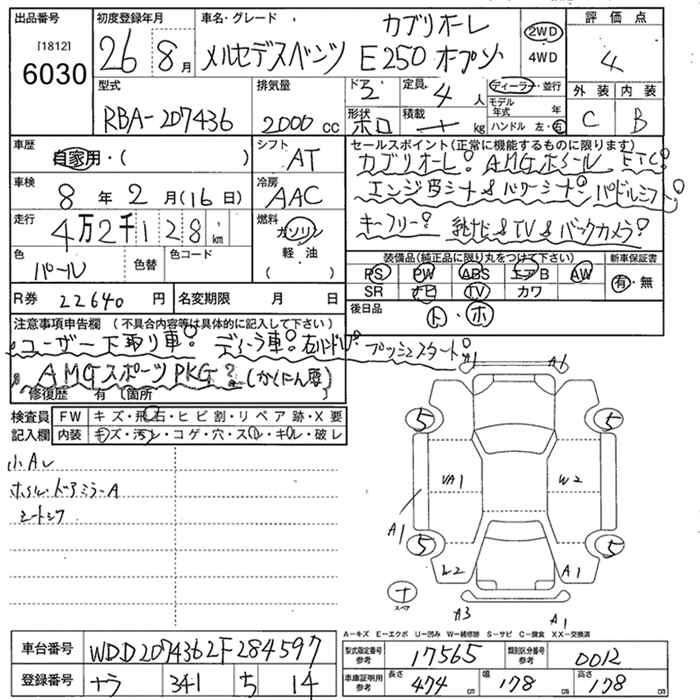 出品番号 [1812] 6030
初度登録年月 26 8月
車名・グレード カブリオーレ
メルセデスベンツ E250 オープン
2WD 4WD
評価点 4
外装 C 内装 B
型式 RBA-207436
排気量 2000cc
ドア 2 定員 4人
形状 ホロ 積載 kg
ディーラー・並行
モデル年式 年
ハンドル 左・右
車歴 自家用・( )
シフト AT
車検 8年2月(16日)
冷房 AAC
走行 4万2千128km
燃料 ガソリン 軽油 ( )
色 パール 色替 色コード
R券 22640円 名変期限 月 日
セールスポイント(正常に機能するものに限ります)
カブリオーレ! AMGホイール ETC!
エンジ皮シート&パワーシート! パドルシフト!
キーフリー! 純ナビ&TV&バックカメラ!
装備品(純正品に限り丸をつけて下さい) 新車保証書
PS PW ABS エアB AW 有・無
SR ナビ TV カワ
後日品 ト・ホ
注意事項申告欄 (不具合内容等は具体的に記入して下さい)
ユーザー下取り車! ディーラ車! 右ハンドル! プッシュスタート!
AMGスポーツPKG? (かくにん要)
修復歴 有 〔箇所 〕
検査員記入欄 FW キズ・飛石・ヒビ割・リペア跡・X要
内装 キズ・汚レ・コゲ・穴・スレ・キレ・破レ
小Aレ
ホイル・ドアミラーA
シートシワ
A1 A6
5 5
UA1 W2
A1
5 5
W2 A1
スペア
A3 A1
A―キズ E―エクボ U―凹み W―補修跡 S―サビ C―腐食 XX―交換済
車台番号 WDD2074362F284597
登録番号 ナラ 341 ち 14
型式指定番号 参考 17565 類別区分番号 参考 0012
車庫証明用 参考 長さ 474cm 幅 178cm 高さ 178cm